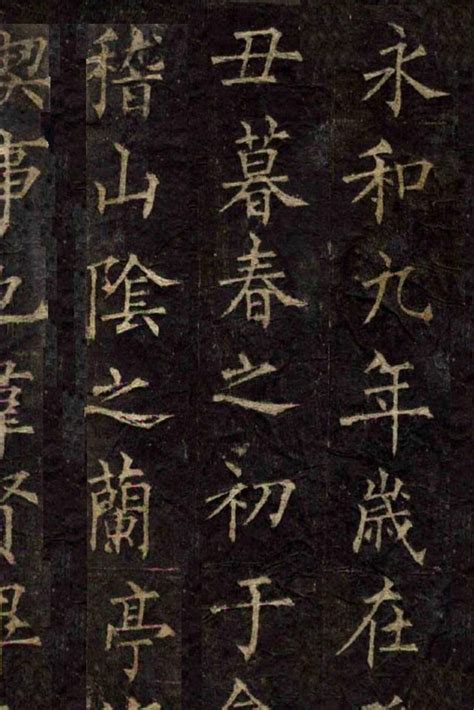 永和九年歲在
丑暮春之初于
稽山陰之蘭亭
禊事也羣賢